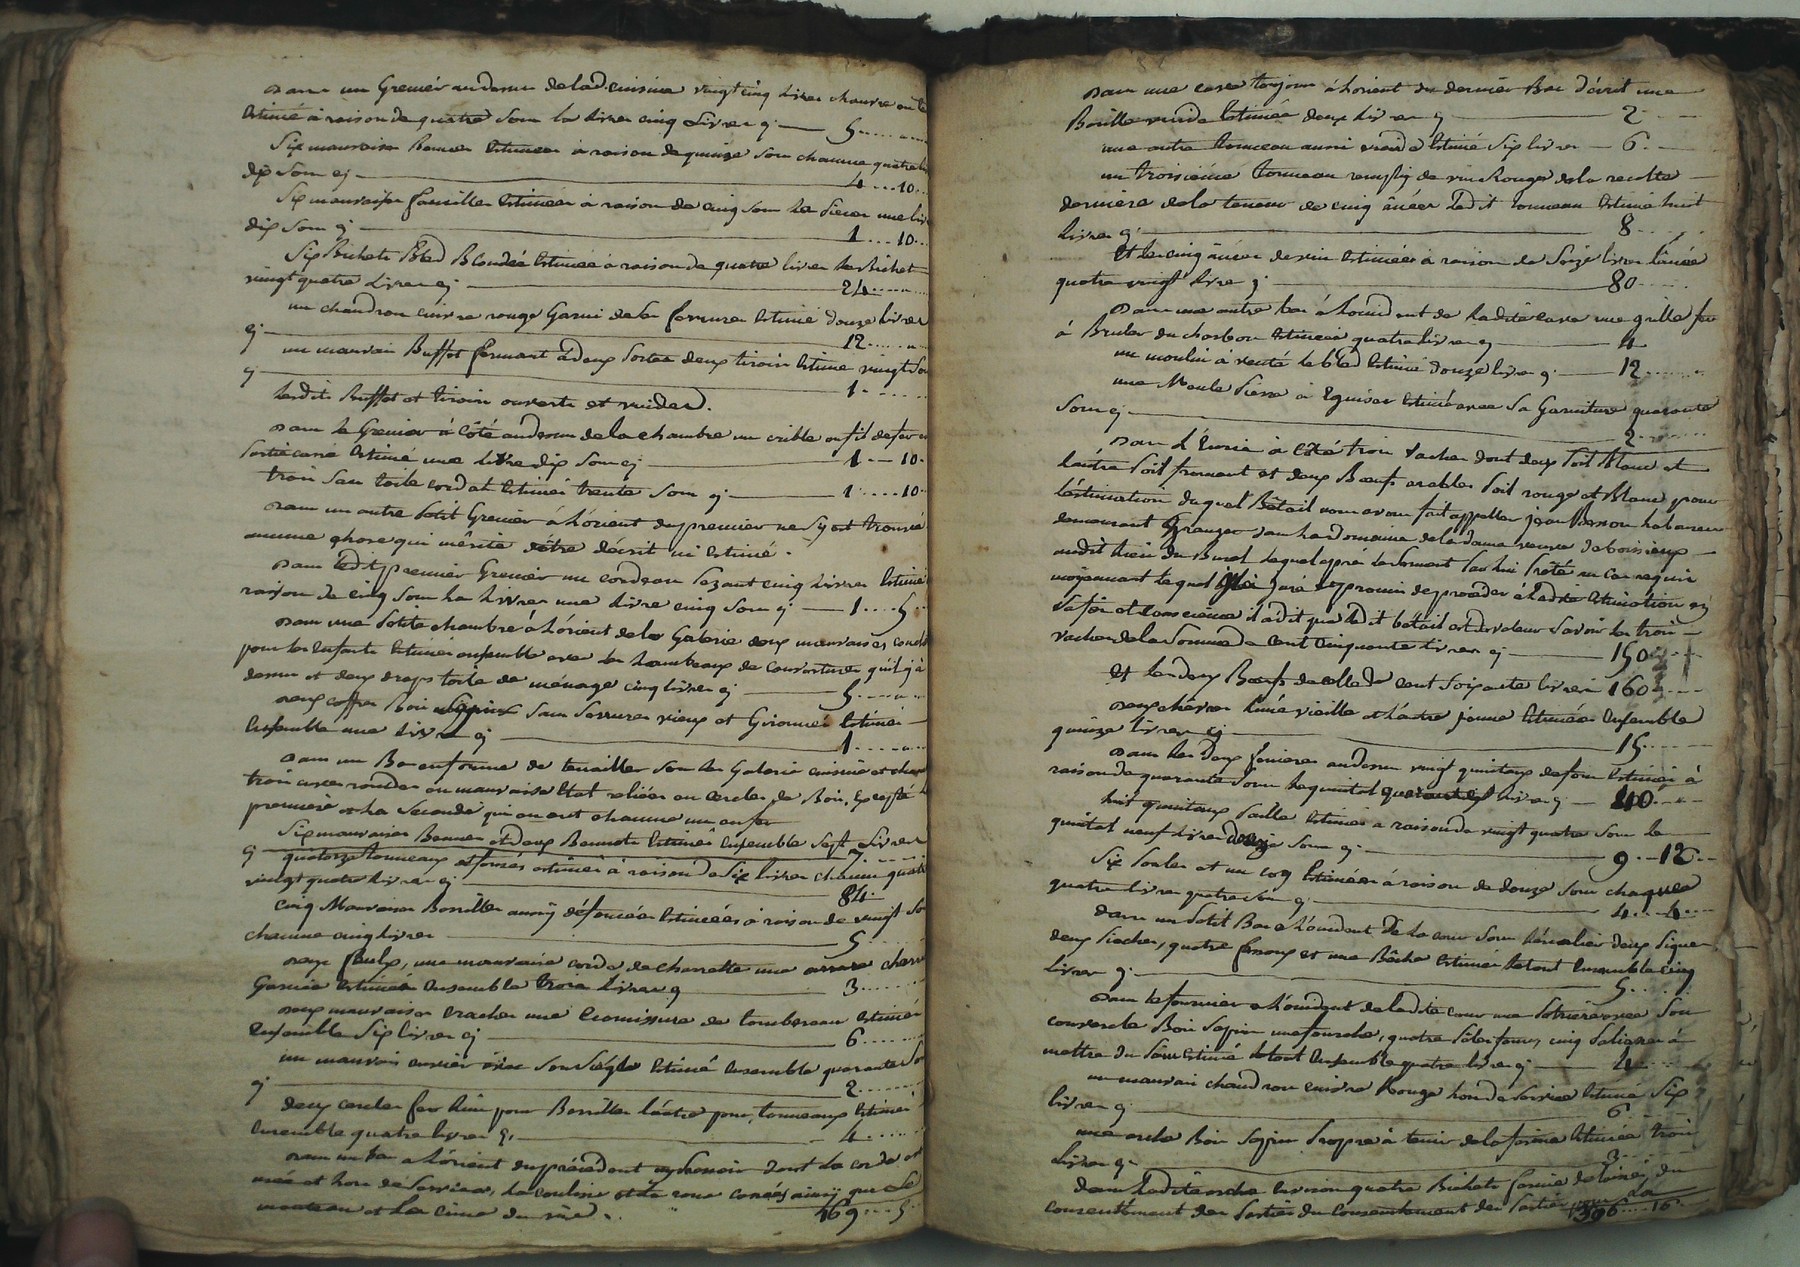 Dans un Grenier au dessus de lad. cuisine vingt cinq livres chanvre
Estimé à raison de quatre sous la livre cinq Livres cy — 5
Six mauvaises Bennes Estimées à raison de quinze sous chacune quatre
dix sous cy — 4 .... 10
Six mauvaises faucilles Estimées à raison de cinq sous la Piece une
dix sous cy — 1 .... 10
Six Bichets Bled Blondée Estimée à raison de quatre livres le Bichet
vingt quatre Livres cy — 24
un chaudron cuivre rouge Garni de sa ferrure Estimé douze livres
cy — 12
un mauvais Buffet fermant à deux portes deux tiroirs Estimé vingt
cy — 1
lesdits Buffet et tiroirs ouverts et vuides.
Dans le Grenier à côté au dessus de la chambre un crible en fil de fer
Estimé une livre dix sous cy — 1 — 10
trois sacs toile Estimés trente sous cy — 1 .... 10
Dans un autre Petit Grenier à L'orient du premier ne s'y est trouvée
aucune chose qui mérite d'être décrit ni Estimé.
Dans ledit premier Grenier un cordeau Pezant cinq Livres Estimé
raison de cinq sous la livre une livre cinq sous cy — 1 .... 5
Dans une Petite chambre à L'orient de la Galerie deux mauvaises
pour les Enfants Estimées ensemble avec les Lambeaux de couvertures qu'il y a
dessus et deux draps toile de ménage cinq livres cy — 5
Deux coffres Bois sapin sans serrures vieux et Estimés
Ensemble une Livre cy — 1
Dans un Bas en forme de tenailler sous la Galerie cuisine et
trois cuves rondes en mauvaise Etat reliées en cercles de Bois, Excepté
premiere et la seconde qui en ont chacune un en fer
Six mauvaises Bennes et deux Bennots Estimés Ensemble Sept Livres
cy — 7
quatorze tonneaux estimés à raison de six livres chacun quatre
vingt quatre Livres cy — 84
cinq Mauvaises Barrilles aussy défoncées Estimées à raison de vingt
chacune cinq livres — 5
Deux faulx, une mauvaise corde de charrette une
Garnie Estimée Ensemble trois Livres cy — 3
Deux mauvaises une de tombereau Estimés
Ensemble Six livres cy — 6
un mauvais cuvier avec son siège Estimé Ensemble quarante
cy — 2
deux cercles fer l'un pour Barrilles l'autre pour tonneaux Estimés
Ensemble quatre livres cy — 4
Dans un bas à L'orient du précédent un dont la corde
usée et hors de service, la et la roue ainsy que
manteau et la du
169 .... 5
Dans une cave toujours à L'orient du dernier Bas décrit une
Barille vuide Estimée deux Livres cy — 2
une autre tonneau aussi vuide Estimé Six livres — 6
un troisième tonneau remply de vin Rouge de la recolte
derniere de la teneur de cinq ânées Ledit tonneau Estimé huit
Livres cy — 8
Et les cinq ânées de vin Estimées à raison de Seize livres l'ânée
quatre vingt Livres cy — 80
Dans une autre bas à L'occident de ladite cave une grille fer
à Bruler du charbon Estimée quatre Livres cy — 4
un moulin à venté le bled Estimé douze livres cy — 12
une Meule Pierre à Eguiser Estimée avec Sa Garniture quarante
Sous cy — 2
Dans L'Ecurie à côté trois Vaches dont deux Poil Blanc et
l'autre Poil froment et deux Bœufs arables Poil rouge et Blanc pour
l'estimation duquel Bétail nous avons fait appeller jean
demeurant Granger dans le Domaine de la dame veuve de boissieux
audit Lieu du Buret lequel après le serment Par lui Preté au Cas requis
moyennant lequel juré et promis de procéder à ladite Estimation en
sa foi et conscience il a dit que ledit bétail est de valeur Savoir les trois
vaches de la Somme de cent Cinquante Livres cy — 150
Et les deux Bœufs de celle de cent soixante livres — 160
Deux chèvres l'une vieille et l'autre jeune Estimées Ensemble
quinze livres cy — 15
Dans les deux fenieres au dessus vingt quintaux de foin Estimés à
raison de quarante sous le quintal quarante livres cy — 40
huit quintaux Paille Estimés à raison de vingt quatre sous le
quintal neuf Livres douze sous cy — 9 — 12
Six Poules et un coq Estimées à raison de douze sous chaque
quatre livres quatre sous cy — 4 — 4
dans un Petit Bas à L'occident de la cour sous l'escalier deux Pignes,
deux Pioches, quatre fessoux et une Bêche Estimés le tout Ensemble cinq
Livres cy — 5
Dans le fournier à L'occident de ladite cour une Petriere avec Son
couvercle Bois Sapin une fourche, quatre Pales fours, cinq Paliasses à
mettre du Pain Estimé le tout Ensemble quatre livres cy — 4
un mauvais chaudron cuivre Rouge hors de Service Estimé Six
livres cy — 6
une arche Bois Sapin Propre à tenir de la farine Estimée trois
Livres cy — 3
dans ladite arche Environ quatre Bichets farine de du
consentement des Parties du Consentement des Parties pour la
396 .... 16